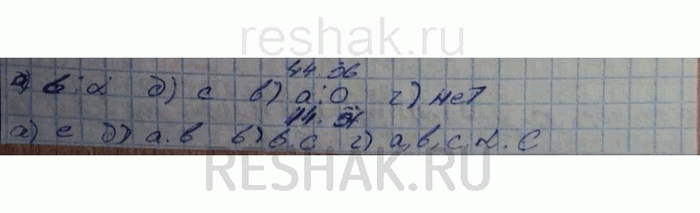 reshak.ru
44.56
а) b; d д) c в) a; 0 г) нет
44.57
а) c д) a. b в) b. c г) a, b, c, d. c
RESHAK.RU